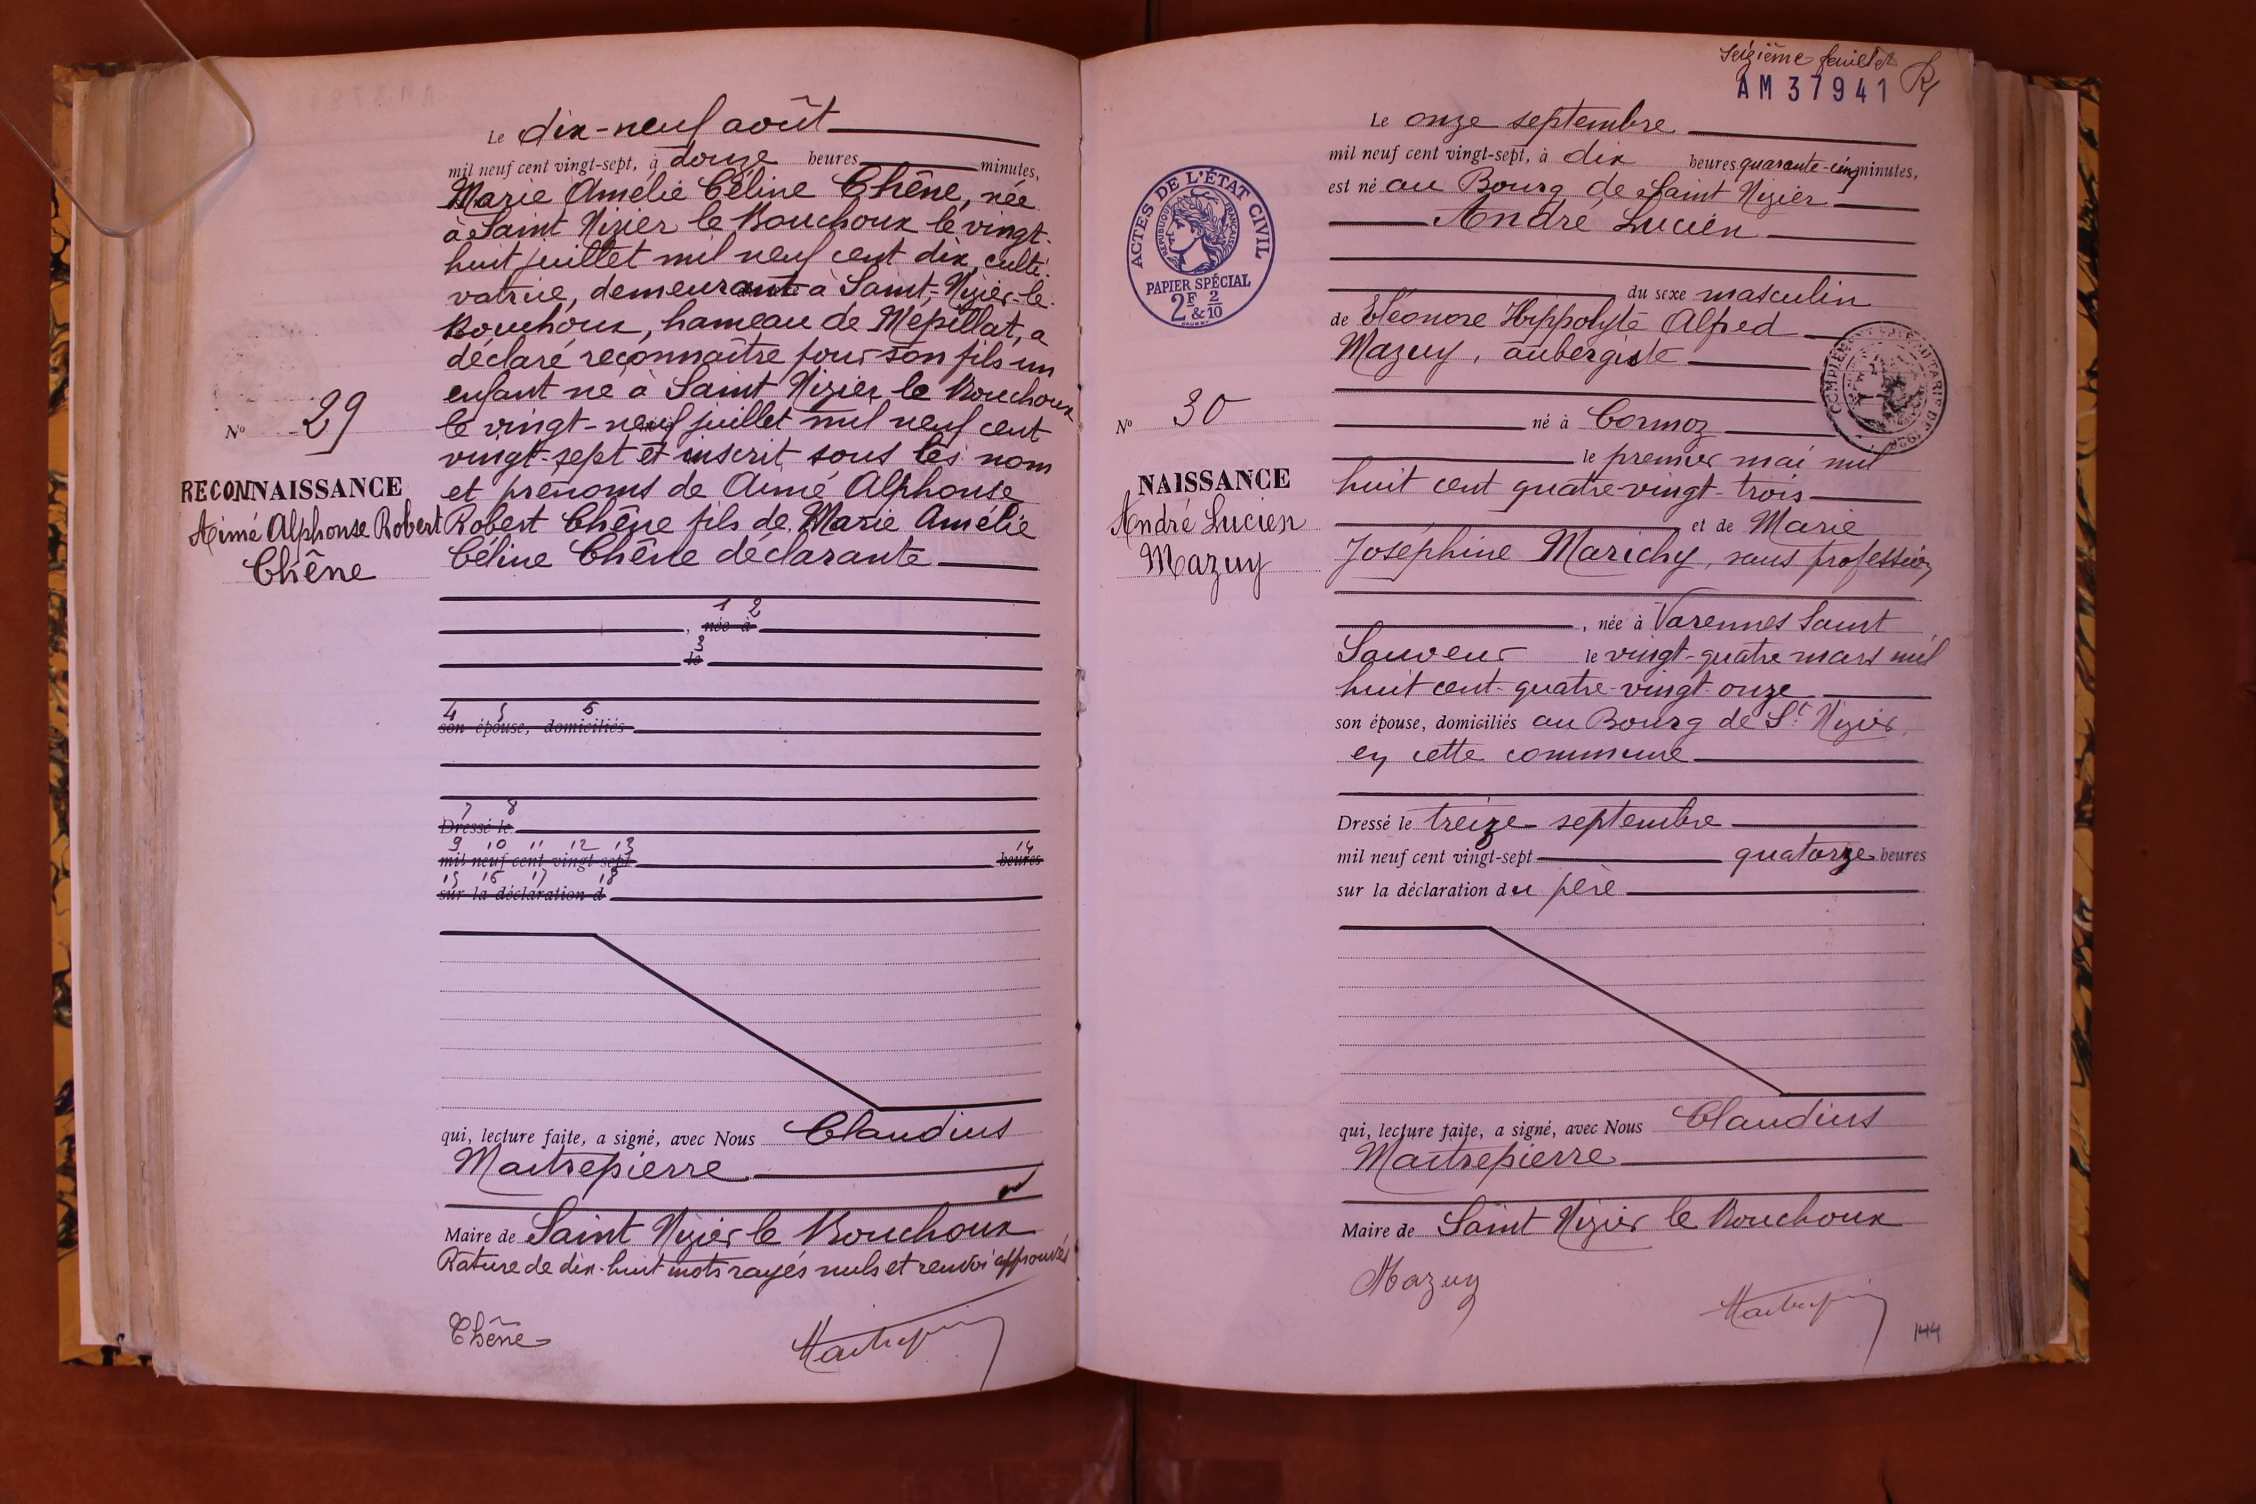 Le dix-neuf août
mil neuf cent vingt-sept, à douze heures minutes,
Marie Amélie Céline Chêne, née
à Saint Nizier le Bouchoux le vingt-
huit juillet mil neuf cent dix, culti-
vatrice, demeurant à Saint-Nizier-le-
Bouchoux, hameau de Mépillat, a
déclaré reconnaître pour son fils un
enfant né à Saint Nizier le Bouchoux
le vingt-neuf juillet mil neuf cent
vingt-sept et inscrit sous les nom
et prénoms de Aimé Alphonse
Robert Chêne fils de Marie Amélie
Céline Chêne déclarante
N° 29
RECONNAISSANCE
Aimé Alphonse Robert
Chêne
1 2
, née à
3
le
4 5 6
son épouse, domiciliés
7 8
Dressé le
9 10 11 12 13 14
mil neuf cent vingt-sept heures
15 16 17 18
sur la déclaration d
qui, lecture faite, a signé, avec Nous Claudius
Maitrepierre
Maire de Saint Nizier le Bouchoux
Rature de dix-huit mots rayés nuls et renvoi approuvés
Chêne
Seizième feuillet
AM 37941
ACTES DE L'ÉTAT CIVIL
RÉPUBLIQUE FRANÇAISE
PAPIER SPÉCIAL
2F & 2/10
Le onze septembre
mil neuf cent vingt-sept, à dix heures quarante-cinq minutes,
est né au Bourg de Saint Nizier
André Lucien
du sexe masculin
de Eléonore Hippolyte Alfred
Mazuy, aubergiste
né à Cormoz
le premier mai mil
huit cent quatre-vingt-trois
et de Marie
Joséphine Marichy, sans profession
, née à Varennes Saint
Sauveur le vingt-quatre mars mil
huit cent-quatre-vingt-onze
son épouse, domiciliés au Bourg de St Nizier,
en cette commune
Dressé le treize septembre
mil neuf cent vingt-sept quatorze heures
sur la déclaration du père
N° 30
NAISSANCE
André Lucien
Mazuy
qui, lecture faite, a signé, avec Nous Claudius
Maitrepierre
Maire de Saint Nizier le Bouchoux
Mazuy
144